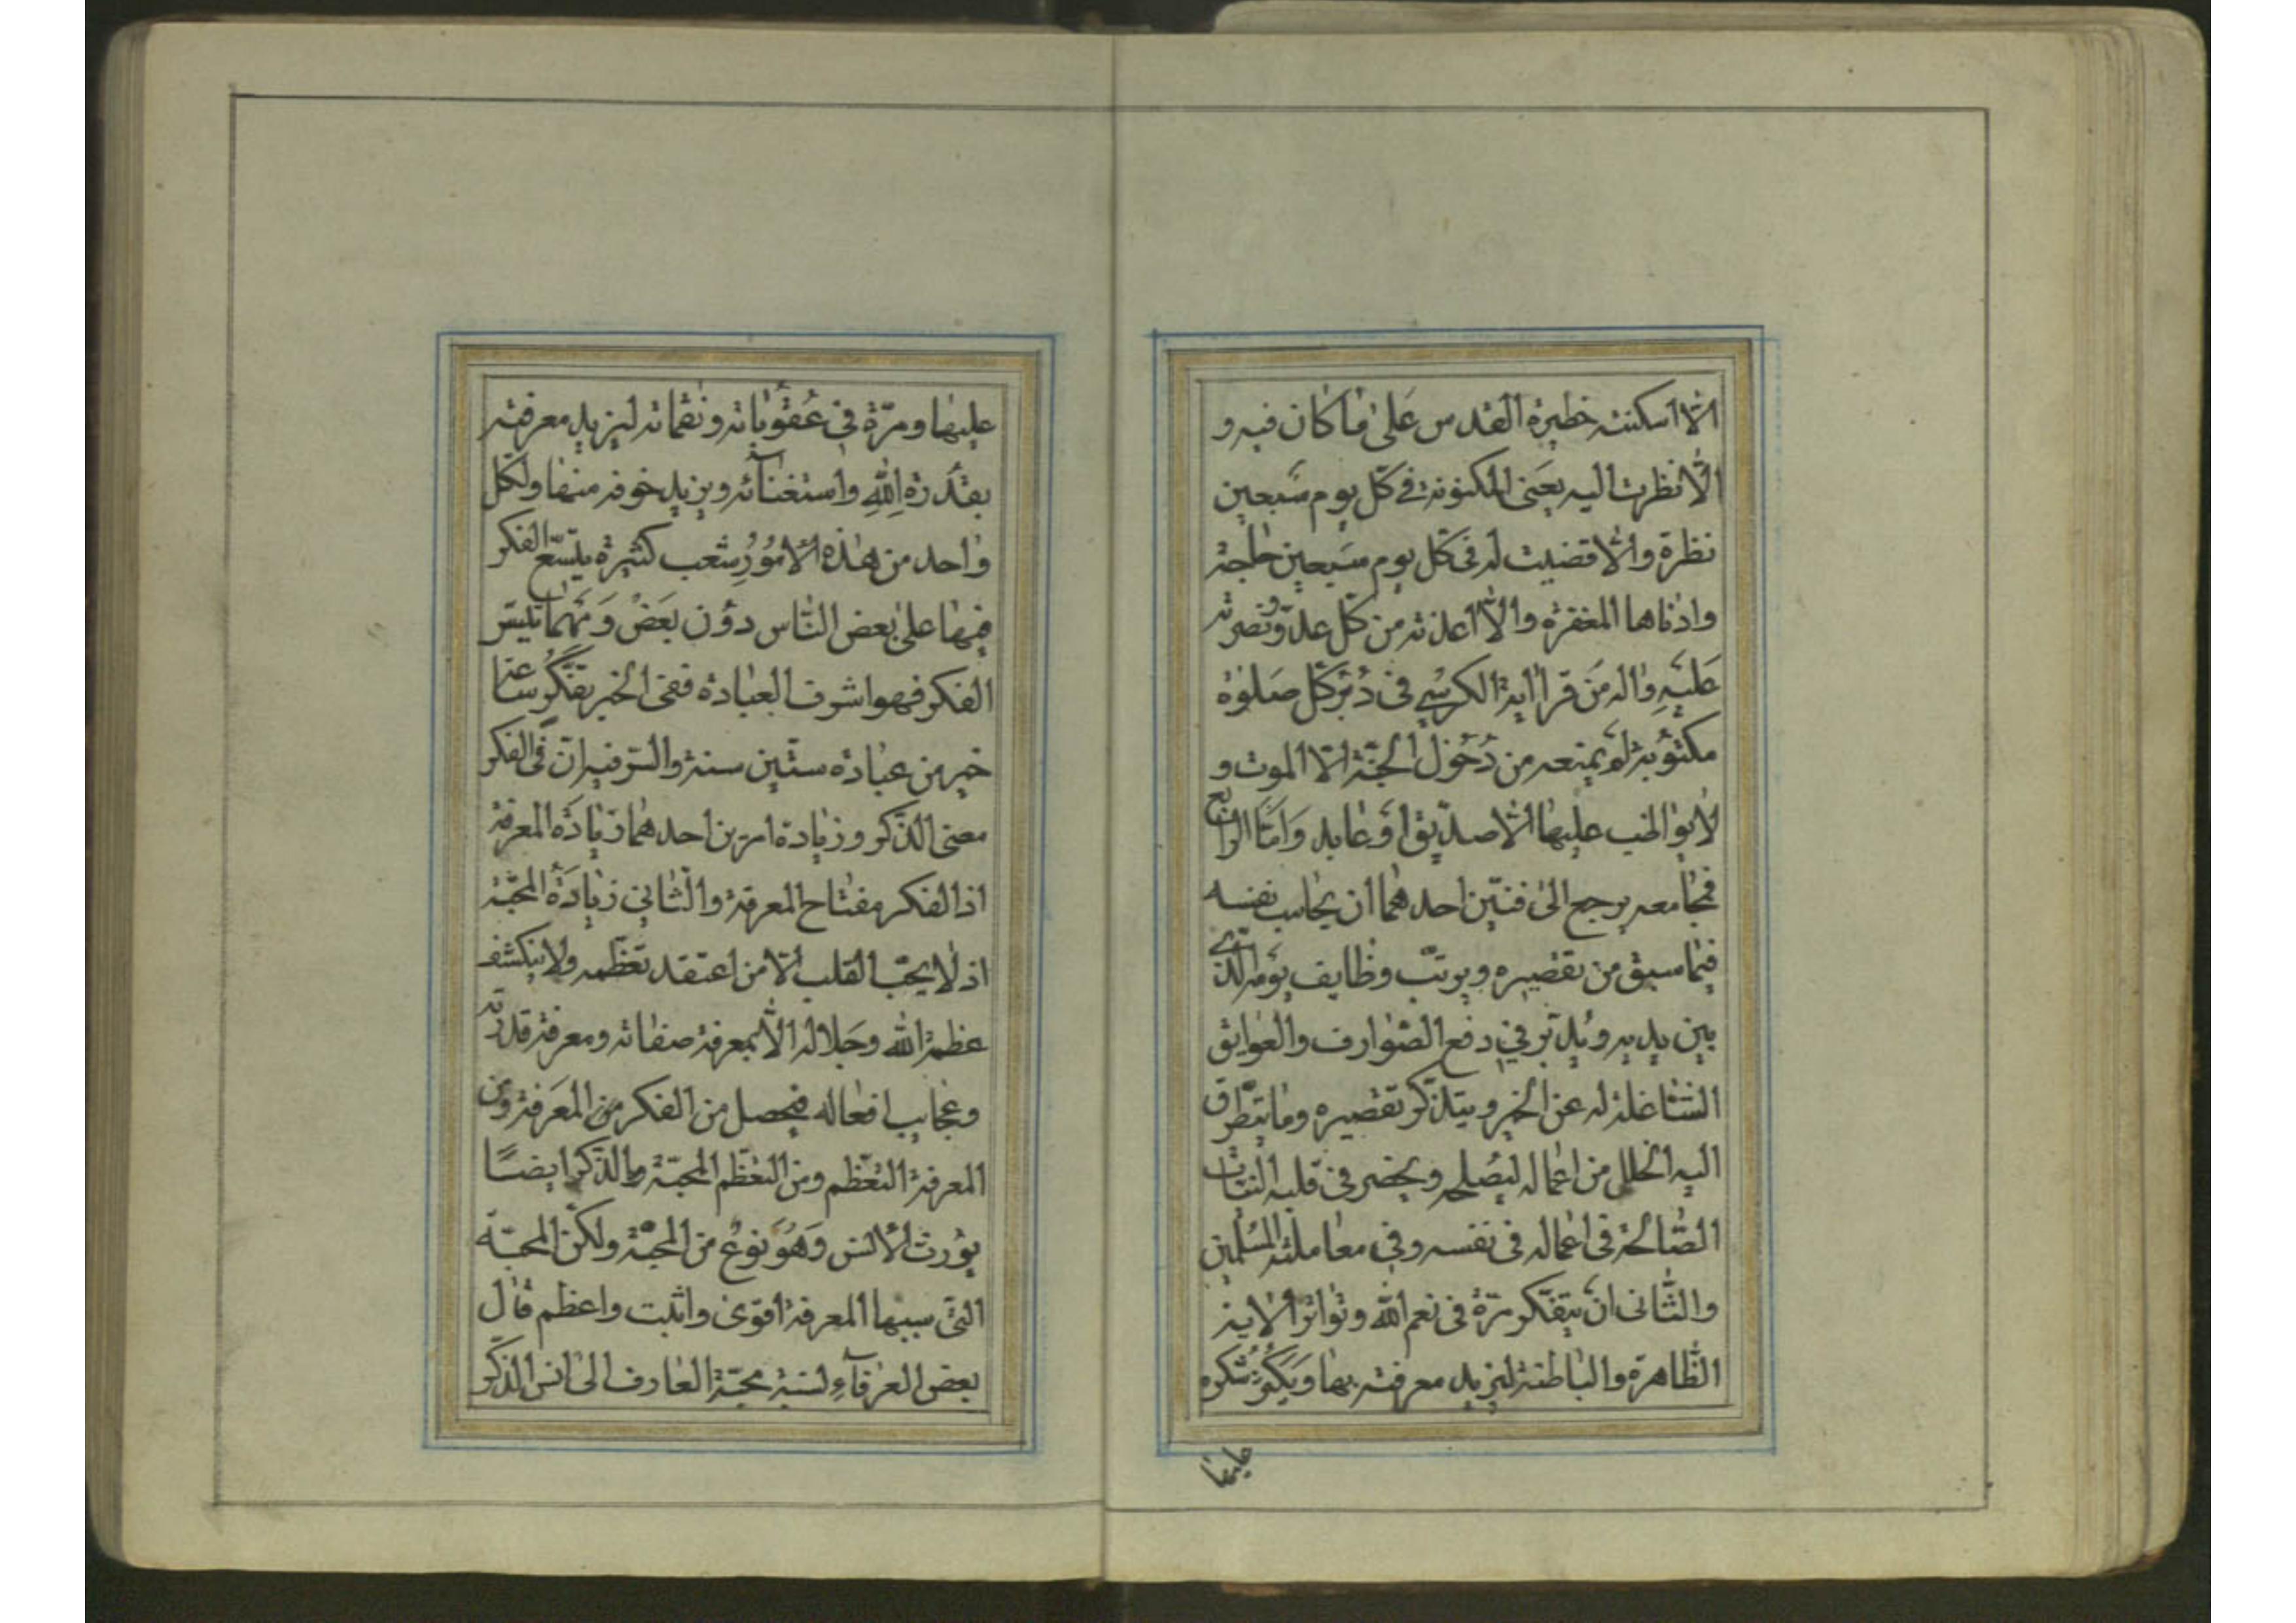 الّا اسكنته خطيرة القدس عَلىٰ مٰا كٰان فيه و
الّا نظرت اليه بعَينى المكنونة فى كلّ يوم سَبعين
نظرة والّا قضيت له فى كلّ يوم سَبعين حٰاجة
وادناها المغفرة والّا اعذته من كلّ عدوّ ونصرته
عَليَهِ واله مَن قرأ اية الكرسي فى دُبر كل صَلوٰة
مكتوُبة لم يمنعه من دُخوُل الجنّة الّا الموت و
لا يوٰاظب عليهٰا الّا صدّيق اوَ عٰابد وَامّا الرابع
فمجٰامعه يرجع الىٰ فنيّن احدهمٰا ان يحٰاسب نفسه
فيمٰا سبق من تقصيره ويرتّب وظٰايف يوَمه الّذى
بين يديه ويُدبّر في دفع الصّوٰارف والعوٰايق
الشّاغلة له عن الخير ويتذكّر تقصيره ومٰا يتطرّق
اليه الخلل من اعمٰاله ليُصلحه ويحضر فى قلبه النيّات
الصّٰالحة فى اعمٰاله فى نفسه وفي معٰاملته المُسلمين
والثّانى انَ يتفكّر مرّة فى نعم الله وتوٰاتر الايه
الظّاهرة والبٰاطنة ليزيد معرفته بهٰا وَيَكُثر شكره
عليها
عليهٰا ومرّة في عُقوُبٰاته ونقمٰاته ليزيد معرفته
بقدرة اللهِ واستغنٰآئه ويزيد خوفه منهٰا ولكل
وٰاحد من هٰذه الاموُرِ شعب كثيرة يتّسع الفكر
فيهٰا علىٰ بعض النّاس دوُن بَعَض وَمَهمٰا تيسّر
الفكر فهو اشرف العبٰادة ففى الخبر تفكّر سٰاعة
خير من عبٰادة ستّين سنة والسّر فيه انّ فى الفكر
معنى الذّكر وزيٰادة امرين احدهمٰا زيٰادَة المعرفة
اذ الفكر مفتٰاح المعرفة والثّٰاني زيٰادَة المحبّة
اذ لٰا يحبّ القلب الّا من اعتقد تعَظّمه ولا ينكشف
عظمة الله وجَلاله الّا بمعرفة صفٰاته ومعرفة قدرته
وعجٰايب افعٰاله فيحصل من الفكر من المعَرفة ومن
المعرفة التعّظم ومن التعّظم المحبّة والذّكر ايضًا
يوُرث الانس وَهُوَ نوعٌ من المحبّة ولكنّ المحبّة
التّى سببها المعرفة اقوىٰ واثبت واعظم قٰال
بعض العرفٰآءِ لنسبة محبّة العٰارف الىٰ انس الذّكر